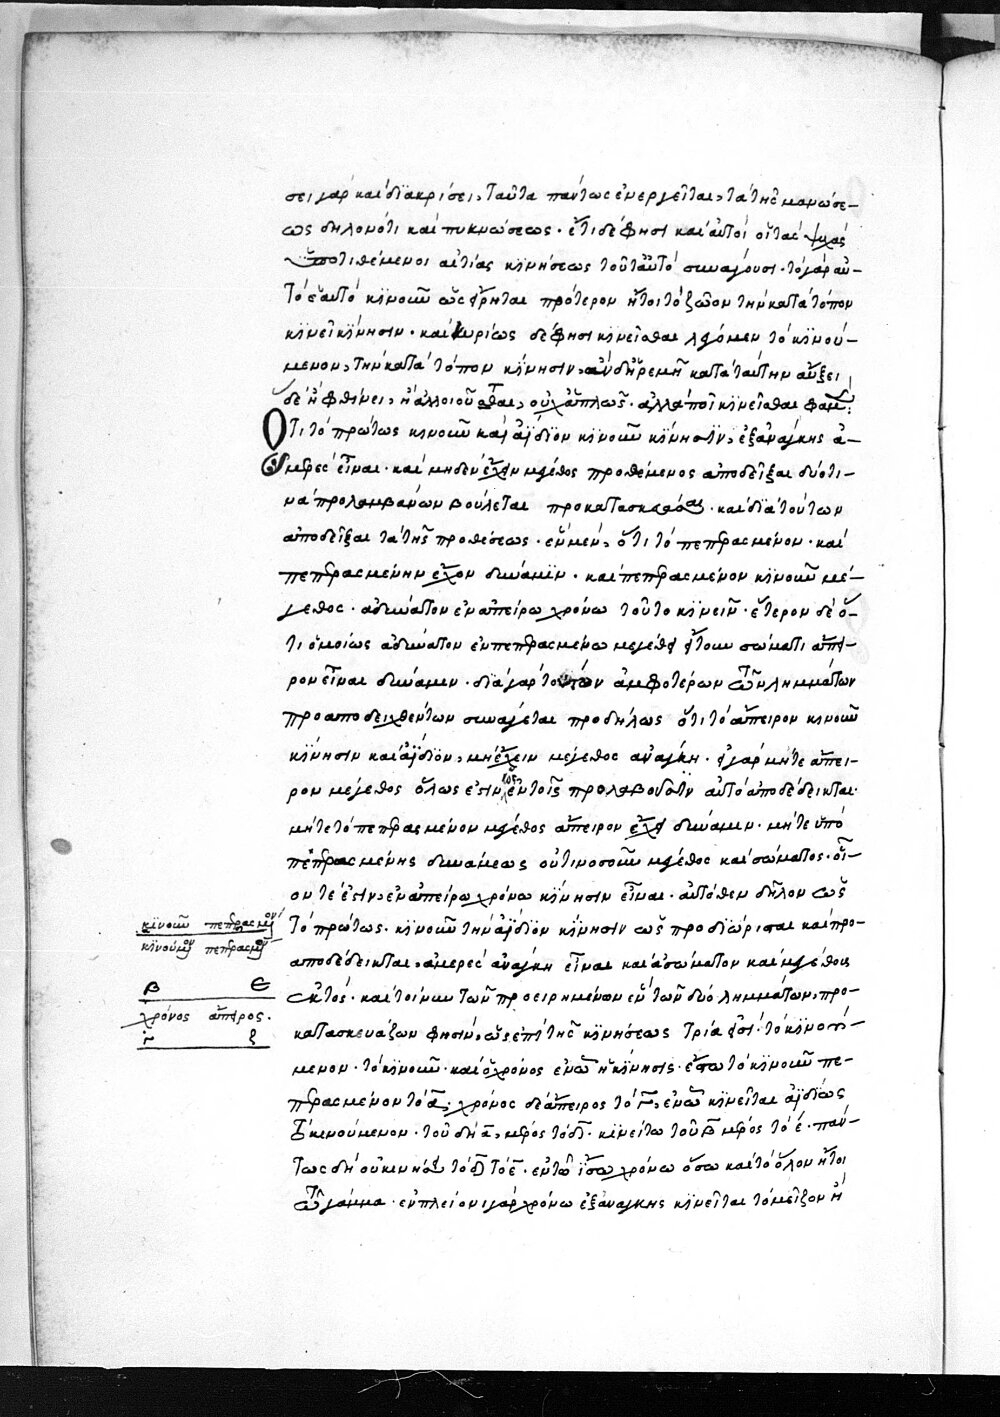 σει γὰρ καὶ διακρίσει, ταῦτα πάντως ἐνεργεῖται, τὰ τῆς μανώσε-
ως δηλονότι καὶ πυκνώσεως. ἔτι δέ φησι καὶ αὐτοὶ οἱ τὰς ψυχὰς
ὑποτιθέμενοι αἰτίας κινήσεως τοῦτ αὐτὸ συνάγουσι. τὸ γὰρ αὐ-
τὸ ἑαυτὸ κινοῦν ὡς εἴρηται πρότερον ἤτοι τὸ ζῶον τὴν κατὰ τόπον
κινεῖ κίνησιν. καὶ κυρίως δέ φησι κινεῖσθαι λέγομεν τὸ κινού-
μενον, τὴν κατὰ τόπον κίνησιν, ἂν δ' ἠρεμῆ κατὰ ταύτην αὔξει
δὲ ἢ φθίνει, ἢ ἀλλοιοῦσθαι, οὐχ ἁπλῶς. ἀλλά πῃ κινεῖσθαι φαμέν:
Ὅτι τὸ πρώτως κινοῦν καὶ ἀΐδιον κινοῦν κίνησιν, ἐξ ἀνάγκης ἀ-
μερὲς εἶναι. καὶ μηδὲν ἔχειν μέγεθος προθέμενος ἀποδεῖξαι δύο τι-
να προλαμβάνων βούλεται προκατασκευάσαι. καὶ διὰ τούτων
ἀποδεῖξαι τὰ τῆς προθέσεως. ἓν μὲν, ὅτι τὸ πεπερασμένον. καὶ
πεπερασμένην ἔχον δύναμιν. καὶ πεπερασμένον κινοῦν μέ-
γεθος. ἀδύνατον ἐν ἀπείρω χρόνω τοῦτο κινεῖν. ἕτερον δὲ ὅ-
τι ὁμοίως ἀδύνατον ἐν πεπερασμένω μεγέθει ἤτοι σώματι ἄπει-
ρον εἶναι δύναμιν. διὰ γὰρ τούτων ἀμφοτέρων τῶν λημμάτων
προαποδειχθέντων συνάγεται προδήλως ὅτι τὸ ἄπειρον κινοῦν
κίνησιν καὶ ἀΐδιον, μὴ ἔχειν μέγεθος ἀνάγκη. εἰ γὰρ μήτε ἄπει-
ρον μέγεθος ὅλως ἐστὶν ὡς ἐν τοῖς προλαβοῦσιν αὐτὸ ἀποδέδεικται.
μήτε τὸ πεπερασμένον μέγεθος ἄπειρον ἔχει δύναμιν. μήτε ὑπὸ
πεπερασμένης δυνάμεως οὑτινοσοῦν μέγεθος καὶ σώματος. οἷ-
ον τέ ἐστιν, ἐν ἀπείρω χρόνω κίνησιν εἶναι. αὐτόθεν δῆλον ὡς
τὸ πρώτως. κινοῦν τὴν ἀΐδιον κίνησιν ὡς προδιώρισται καὶ προ-
αποδέδεικται, ἀμερὲς ἀνάγκη εἶναι καὶ ἀσώματον καὶ μεγέθους
ἐκτός. καὶ τοίνυν τῶν προειρημένων ἓν τῶν δύο λημμάτων, προ-
κατασκευάζων φησιν, ὡς ἐπὶ τῆς κινήσεως τρία ἐστί. τὸ κινού-
μενον. τὸ κινοῦν. καὶ ὁ χρόνος ἐν ῶ ἡ κίνησις. ἔστω τὸ κινοῦν πε-
περασμένον τὸ α. χρόνος δὲ ἄπειρος τὸ γ, ἐν ῶ κινεῖται ἀϊδίως
τὸ κινούμενον. τοῦ δὴ α, μέρος τὸ δ. κινείτω τοῦ β μέρος τὸ ε. πάν-
τως δὴ οὐ κινήσει τὸ δ τὸ ε. ἐν τῶ ἴσω χρόνω ὅσω καὶ τὸ ὅλον ἤτοι
τῶ γάμμα. ἐν πλείονι γὰρ χρόνω ἐξ ἀνάγκης κινεῖται τὸ μεῖζον ἢ
κινοῦν πεπερασμένον
κινούμενον πεπερασμένον
β ε
χρόνος ἄπειρος.
γ ζ